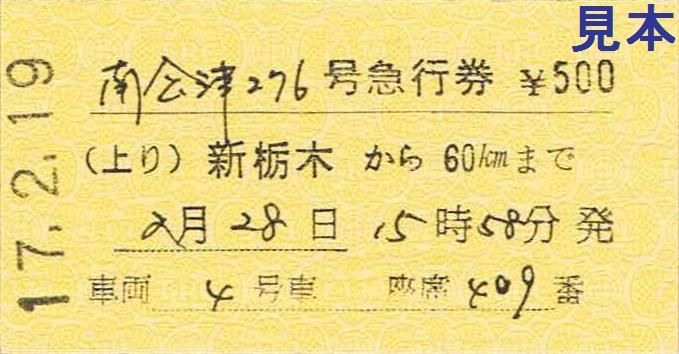 見本
南会津276号急行券 ¥500
(上り) 新栃木 から 60kmまで
2月 28日 15時58分発
車両 4 号車 座席 409 番
17.2.19